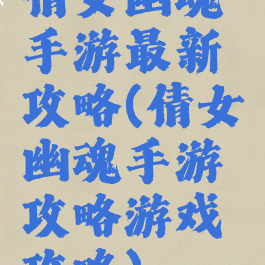 倩女幽魂
手游最新
攻略(倩女
幽魂手游
攻略游戏
攻略)